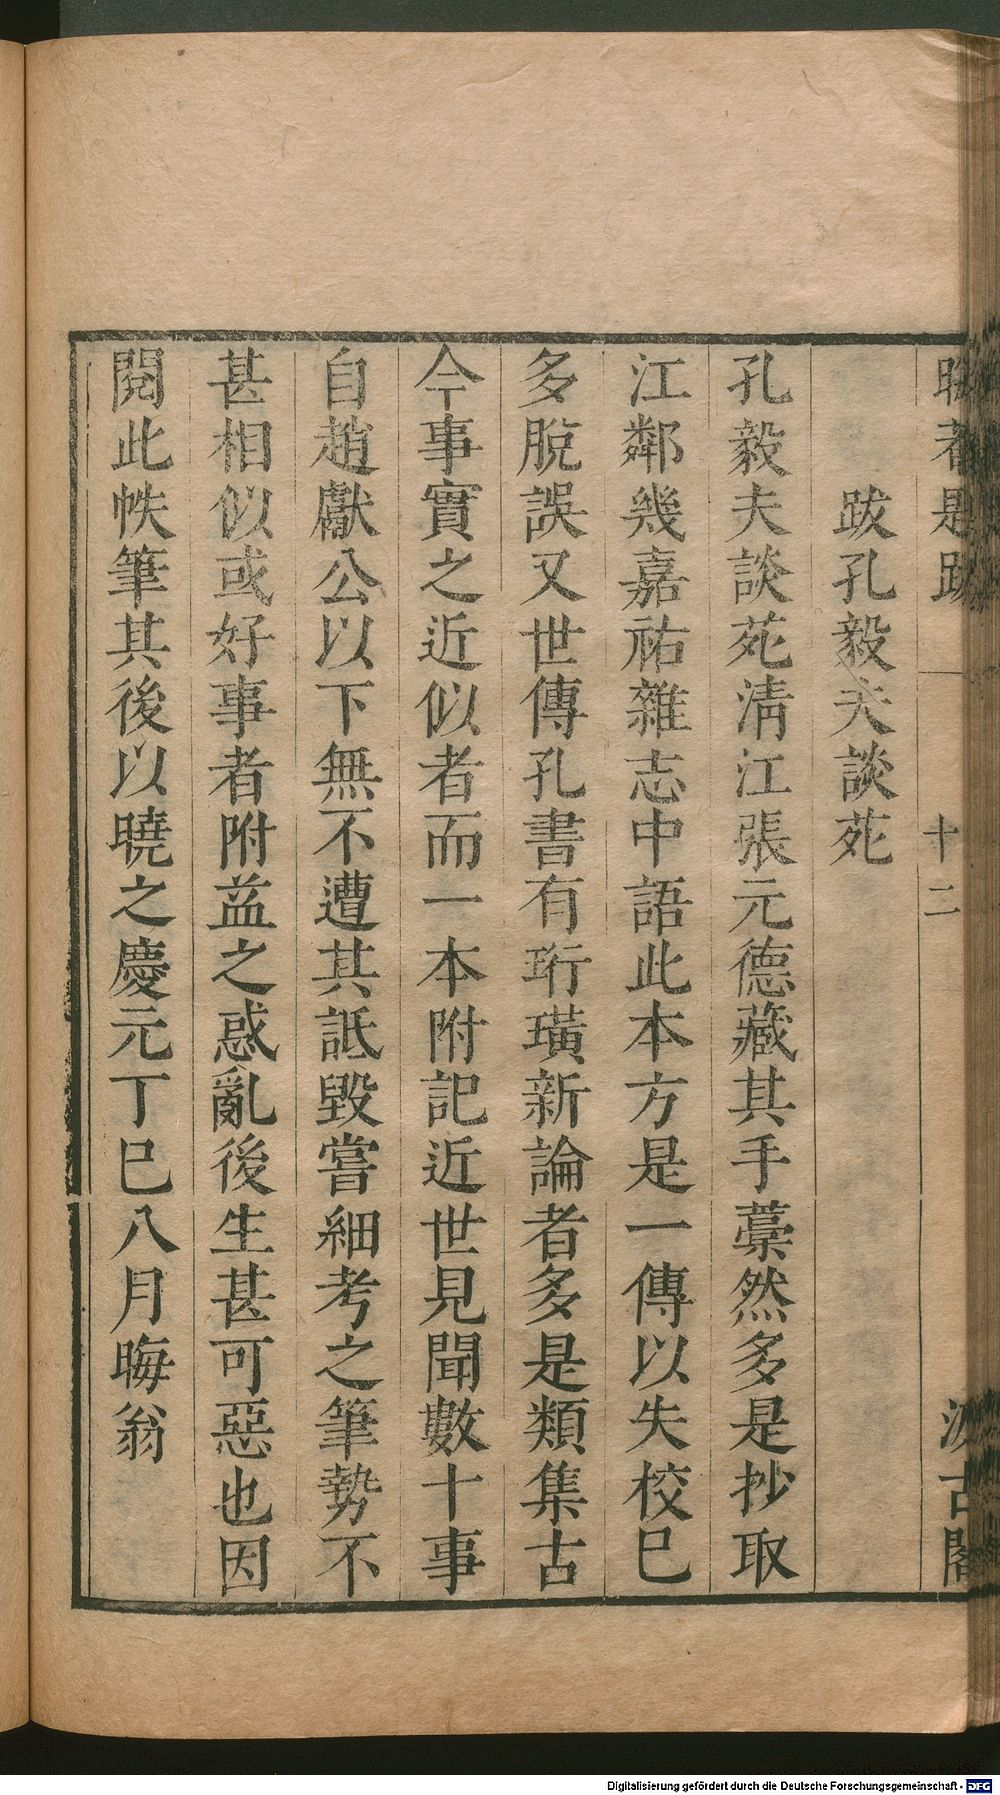 晦菴題跋 一 十二 汲古閣
跋孔毅夫談苑
孔毅夫談苑淸江張元德藏其手藁然多是抄取
江鄰幾嘉祐雜志中語此本方是一傳以失校已
多脫誤又世傳孔書有珩璜新論者多是類集古
今事實之近似者而一本附記近世見聞數十事
自趙獻公以下無不遭其詆毀嘗細考之筆勢不
甚相似或好事者附益之惑亂後生甚可惡也因
閱此帙筆其後以曉之慶元丁巳八月晦翁
Digitalisierung gefördert durch die Deutsche Forschungsgemeinschaft - DFG